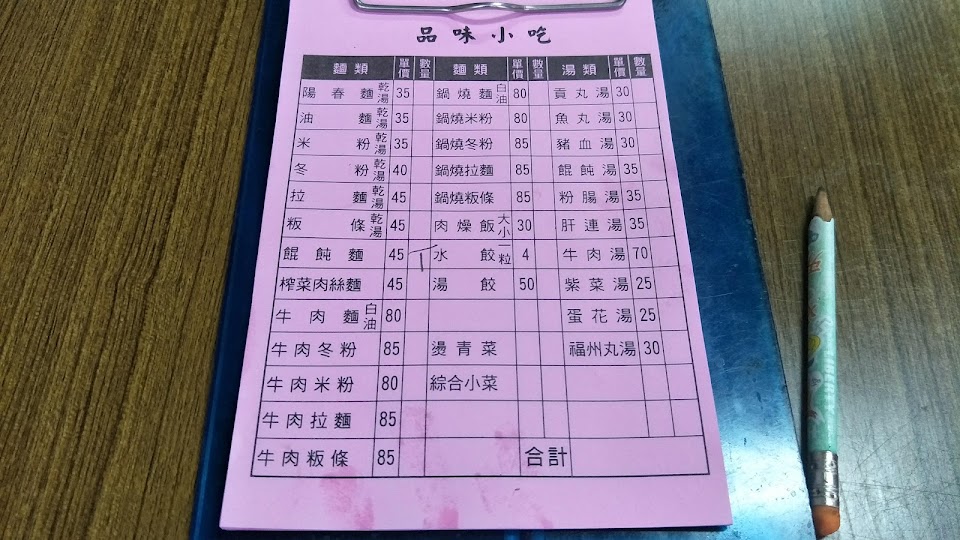 品味小吃
麵類 單價 數量 麵類 單價 數量 湯類 單價 數量
陽春麵 乾湯 35 鍋燒麵 白油 80 貢丸湯 30
油麵 乾湯 35 鍋燒米粉 80 魚丸湯 30
米粉 乾湯 35 鍋燒冬粉 85 豬血湯 30
冬粉 乾湯 40 鍋燒拉麵 85 餛飩湯 35
拉麵 乾湯 45 鍋燒粄條 85 粉腸湯 35
粄條 乾湯 45 肉燥飯 大小 30 肝連湯 35
餛飩麵 45 水餃 一粒 4 牛肉湯 70
榨菜肉絲麵 45 湯餃 50 紫菜湯 25
牛肉麵 白油 80 蛋花湯 25
牛肉冬粉 85 燙青菜 福州丸湯 30
牛肉米粉 80 綜合小菜
牛肉拉麵 85
牛肉粄條 85 合計